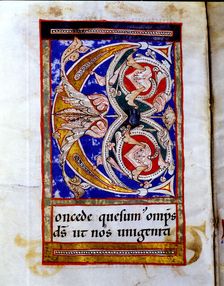 oncede quesum' omps
ds ut nos unigeniti